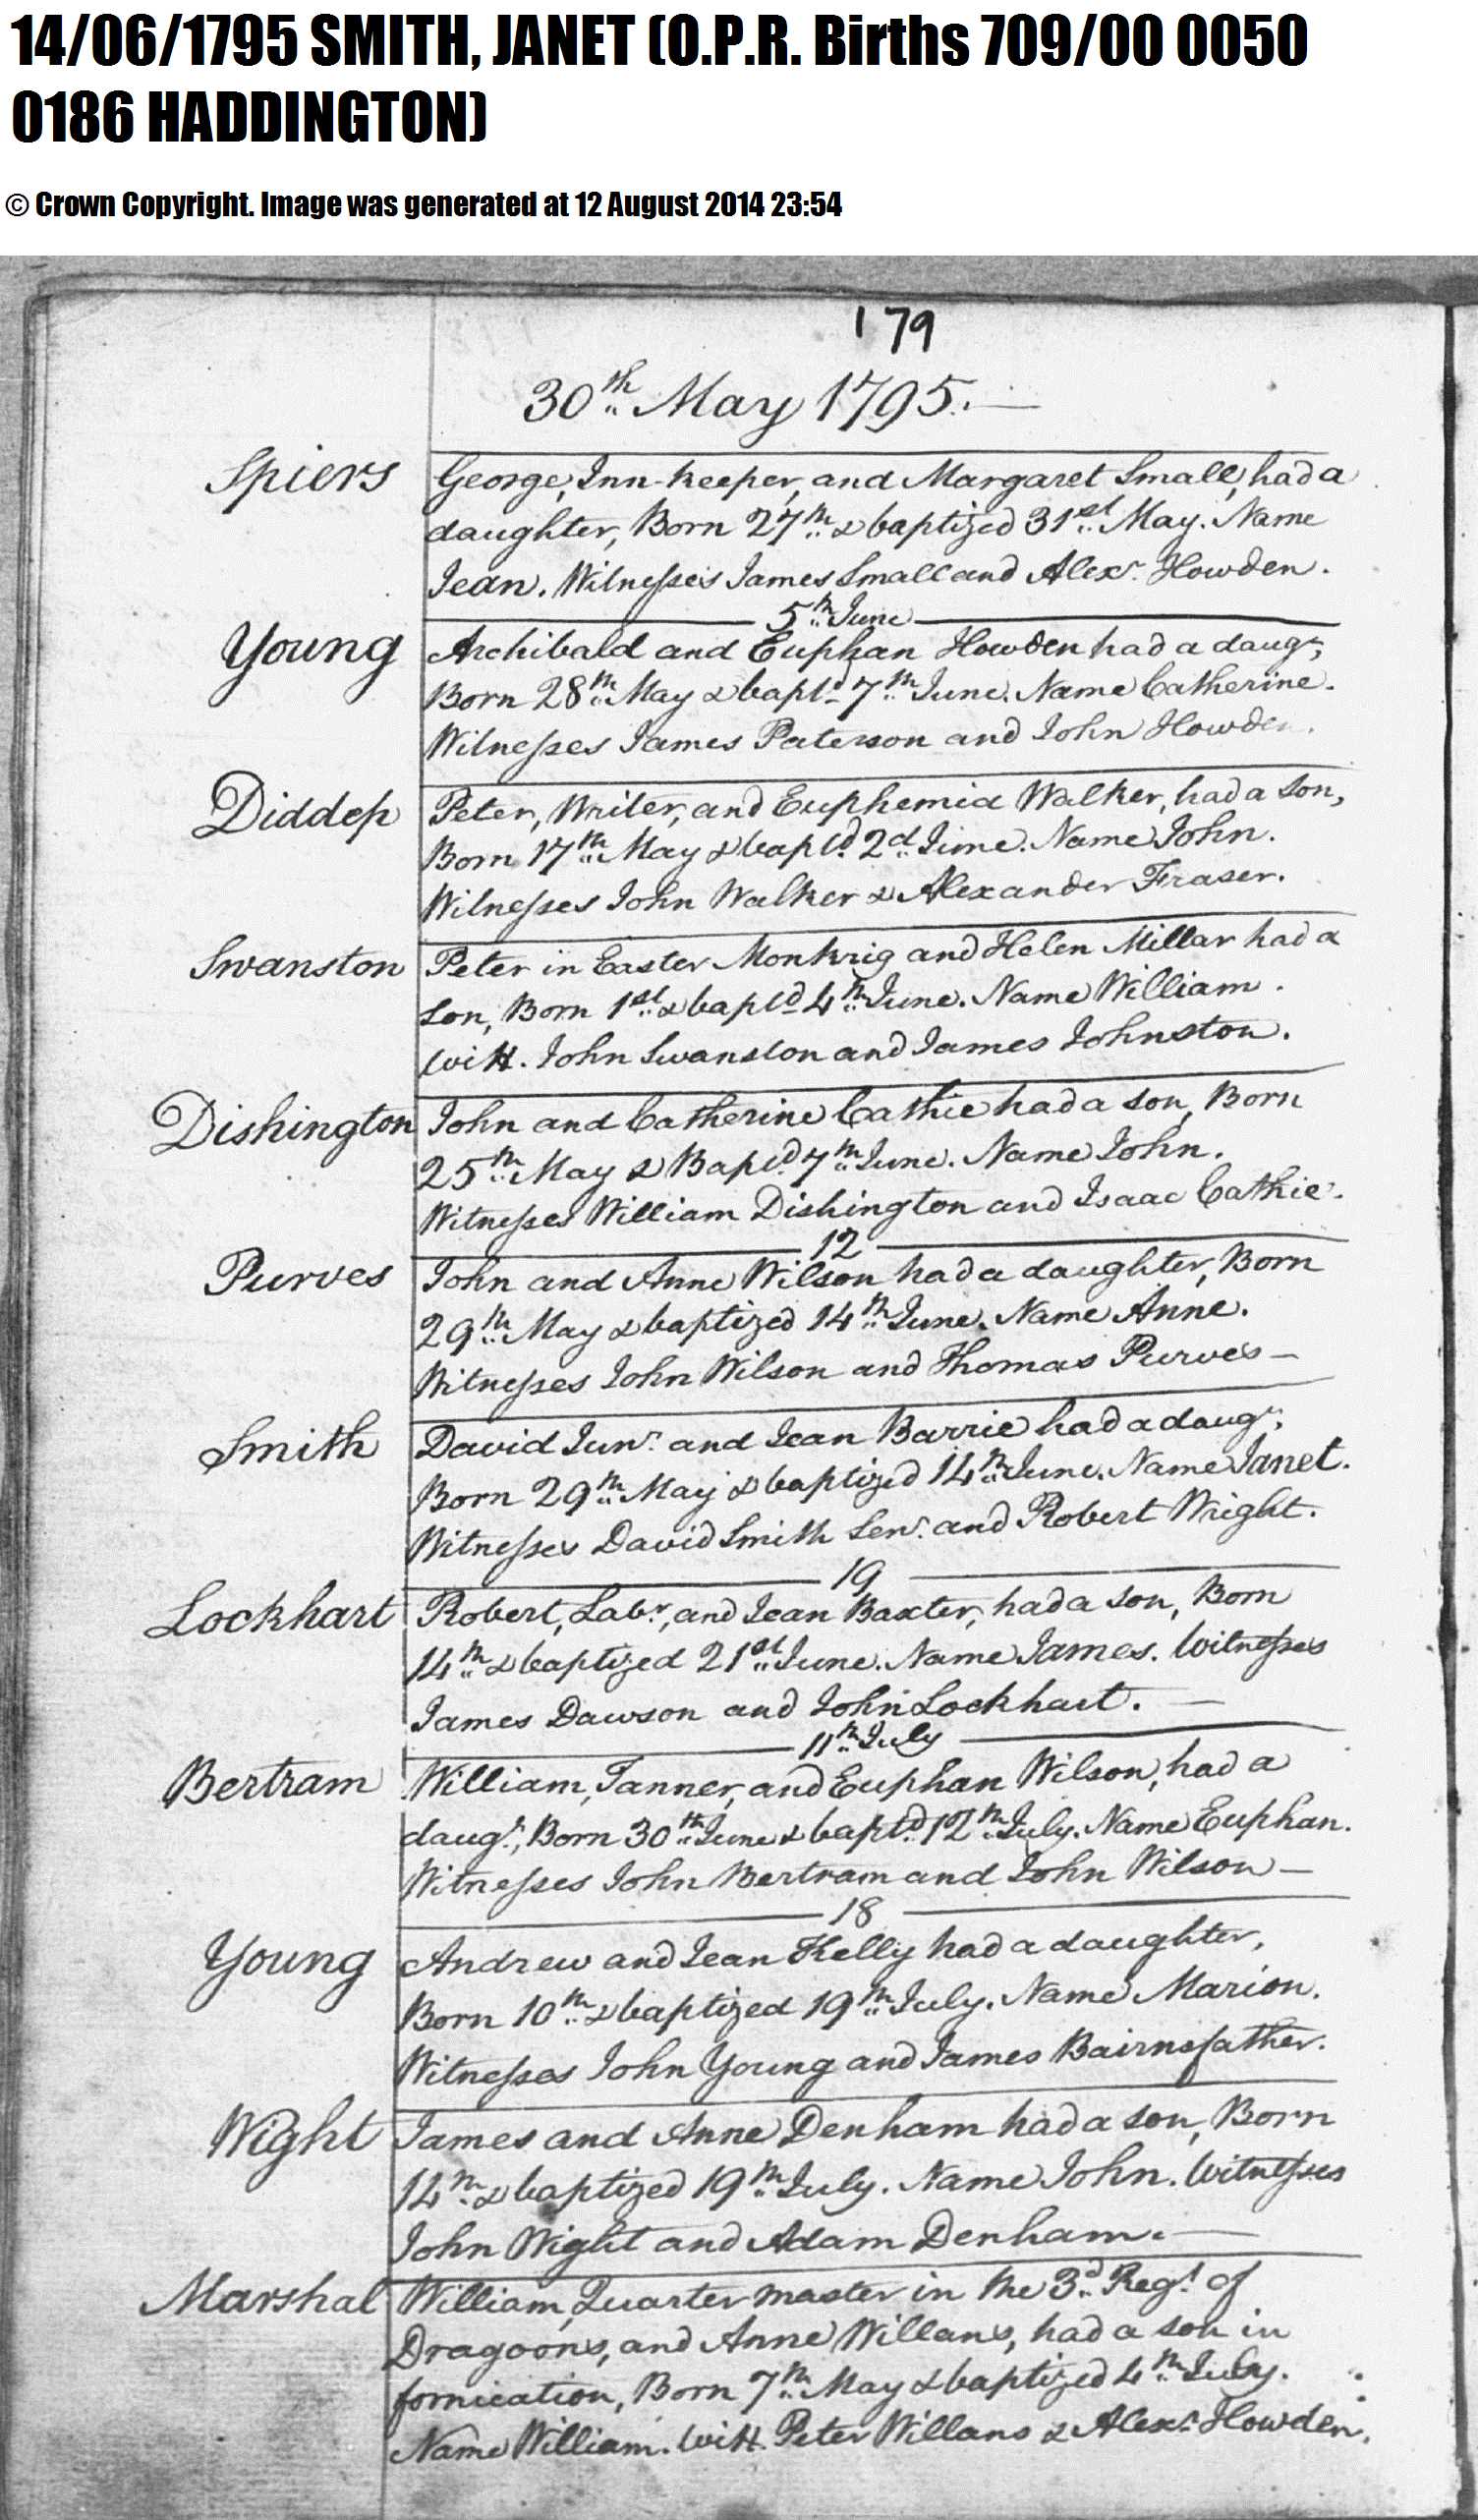 14/06/1795 SMITH, JANET (O.P.R. Births 709/00 0050
0186 HADDINGTON)
© Crown Copyright. Image was generated at 12 August 2014 23:54
179
30th May 1795.—
Spiers George, Inn-keeper, and Margaret Small, had a
daughter, Born 27th & baptized 31st May. Name
Jean. Witnesses James Small and Alexr. Howden.
5th June
Young Archibald and Euphan Howden had a daugr,
Born 28th May & baptd 7th June. Name Catherine.
Witnesses James Paterson and John Howden.
Diddep Peter, Writer, and Euphemia Walker, had a son,
Born 17th May & baptd. 2d June. Name John.
Witnesses John Walker & Alexander Fraser.
Swanston Peter in Easter Monkrig and Helen Millar had a
son, Born 1st & baptd 4th June. Name William.
Witt. John Swanston and James Johnston.
Dishington John and Catherine Cathie had a son, Born
25th May & Baptd. 7th June. Name John.
Witnesses William Dishington and Isaac Cathie.
12
Purves John and Anne Wilson had a daughter, Born
29th May & baptized 14th June. Name Anne.
Witnesses John Wilson and Thomas Purves—
Smith David Junr. and Jean Barrie had a daugr,
Born 29th May & baptized 14th June. Name Janet.
Witnesses David Smith Senr. and Robert Wright.
19
Lockhart Robert, Labr., and Jean Baxter, had a son, Born
14th & baptized 21st June. Name James. Witnesses
James Dawson and John Lockhart. —
11th July
Bertram William, Tanner, and Euphan Wilson, had a
daugr., Born 30th June & baptd. 12th July. Name Euphan.
Witnesses John Bertram and John Wilson—
18
Young Andrew and Jean Kelly had a daughter,
Born 10th & baptized 19th July. Name Marion.
Witnesses John Young and James Bairnsfather.
Wight James and Anne Denham had a son, Born
14th & baptized 19th July. Name John. Witnesses
John Wight and Adam Denham.—
Marshal William, Quarter master in the 3d. Regt. of
Dragoons, and Anne Willans, had a son in
fornication, Born 7th May & baptized 4th July.
Name William. Witt. Peter Willans & Alexr. Howden.